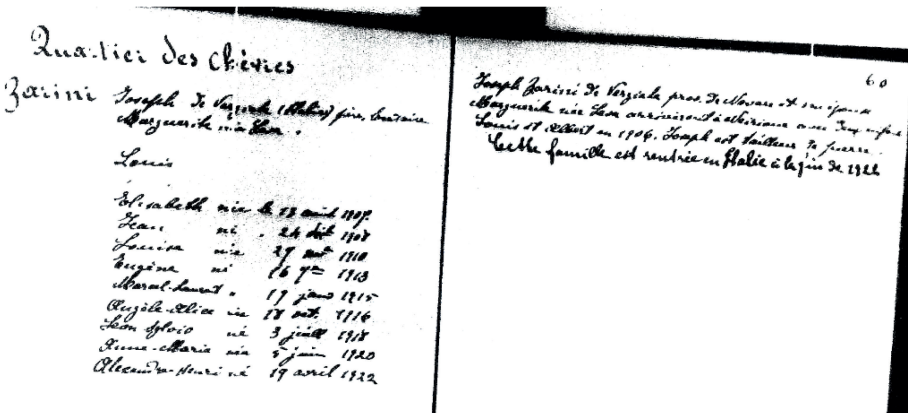 Quartier des Chèvres
Zarini Joseph de Verziale (Italie) père,
Marguerite née
Louis
Elisabeth née le 13 août 1907.
Jean né . 24 1908
Louisa née 27 1910
Eugène né 16 7re 1913
Marcel-Laurent " 19 janv 1915
Angèle-Alice née 18 oct. 1916
Léon Sylvio né 3 juill 1918
Anne-Marie née 5 juin 1920
Alexandre-Henri né 19 avril 1922
60
Joseph Zarini de Verziale prov. de Novare et son épouse
Marguerite née arrivèrent à avec deux enfants
Louis et Albert en 1906. Joseph est tailleur de pierre.
Cette famille est rentrée en Italie à la fin de 1922